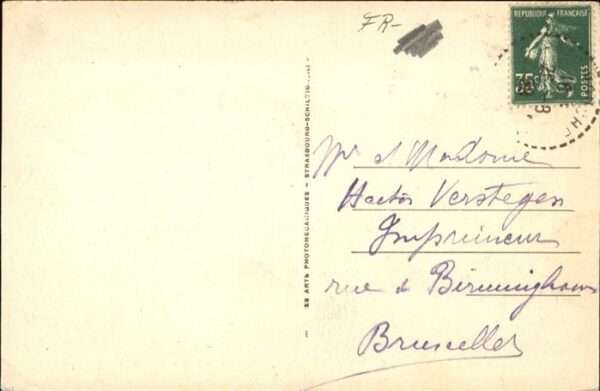 FR-
REPUBLIQUE FRANÇAISE
POSTES
Mr et Madame
Hector Verstegen
Imprimeur
rue de Birmingham
Bruxelles
ARTS PHOTOMECANIQUES - STRASBOURG-SCHILTIGH